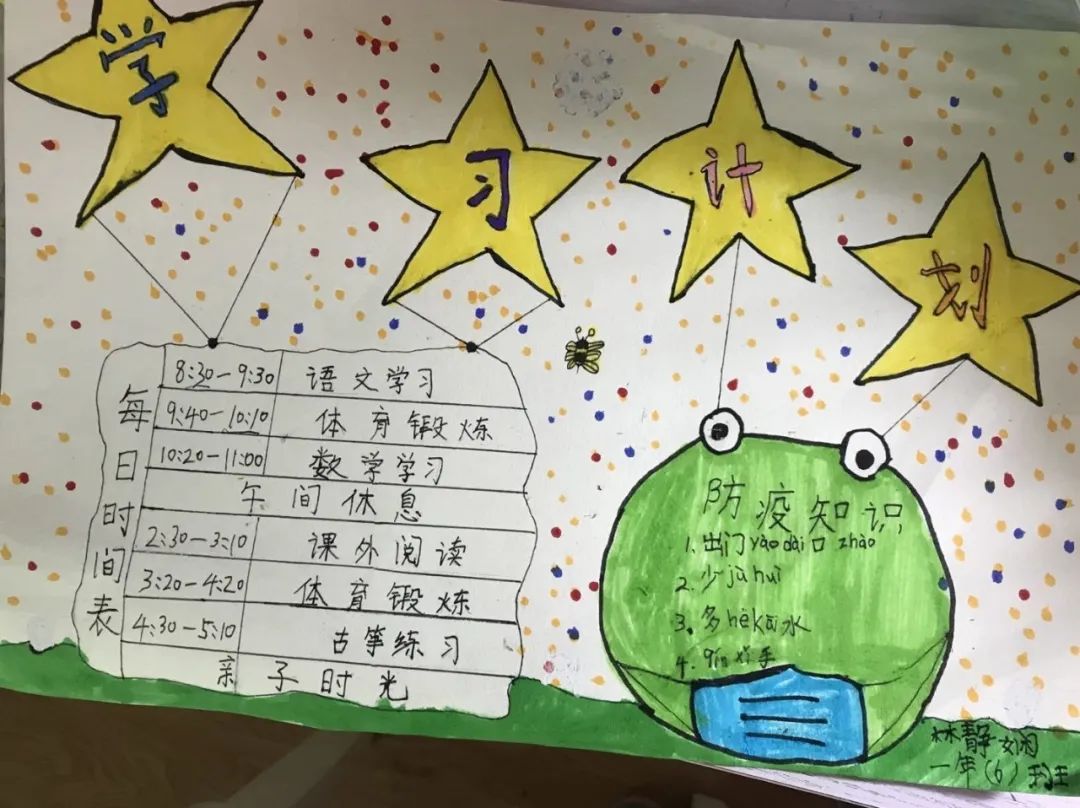 学习计划
每日时间表
8:30-9:30 语文学习
9:40-10:10 体育锻炼
10:20-11:00 数学学习
午间休息
2:30-3:10 课外阅读
3:20-4:20 体育锻炼
4:30-5:10 古筝练习
亲子时光
防疫知识
1、出门yàodài口zhào
2、少jùhuì
3、多hēkāi水
4、qínxǐ手
林静娴
一年(6)班